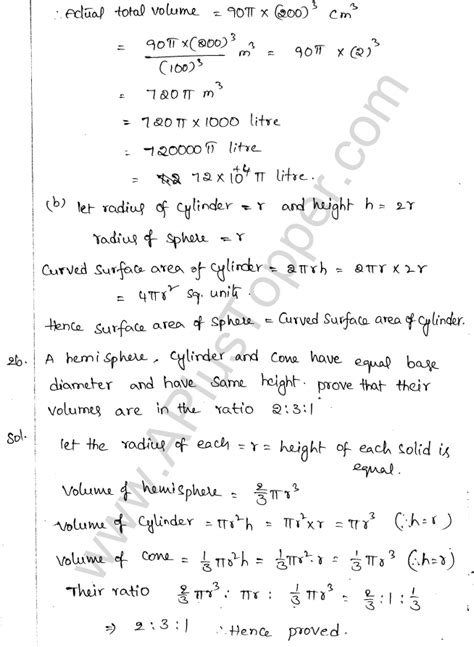 ∴ Actual total volume = 90π × (200)³ cm³
= 90π × (200)³ / (100)³ m³ = 90π × (2)³
= 720π m³
= 720π × 1000 litre
= 720000π litre
= 72 × 10⁺⁴ π litre.
(b) let radius of cylinder = r and height h = 2r
radius of sphere = r
Curved surface area of cylinder = 2πrh = 2πr × 2r
= 4πr² sq. units
Hence surface area of sphere = Curved surface area of cylinder.
26. A hemisphere, cylinder and cone have equal base
diameter and have same height. prove that their
volumes are in the ratio 2:3:1
Sol. let the radius of each = r = height of each solid is
equal.
Volume of hemisphere = 2/3 πr³
Volume of cylinder = πr²h = πr² × r = πr³ (∵ h = r)
Volume of cone = 1/3 πr²h = 1/3 πr² · r = 1/3 πr³ (∵ h = r)
Their ratio 2/3 πr³ : πr : 1/3 πr³ = 2/3 : 1 : 1/3
⇒ 2:3:1 ∴ Hence proved.
www.APlusTopper.com